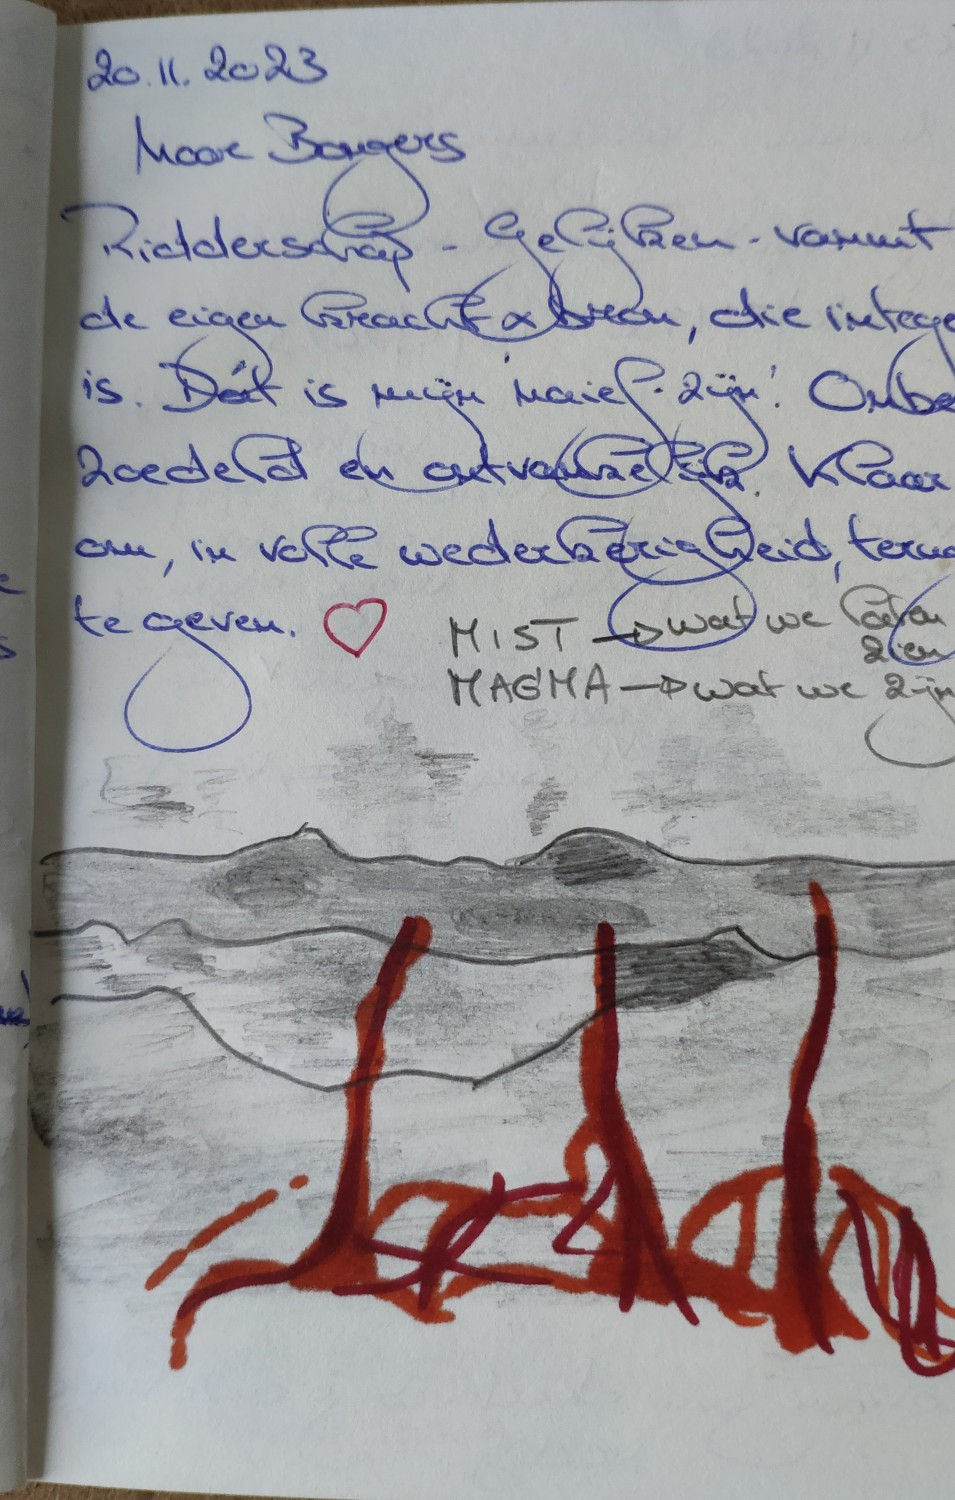 20.11.2023
Naar Bongers
Ridderschap - Gelijken - vanuit
de eigen kracht & bron, die intege
is. Dát is mijn 'naïef-zijn'. Onbe
zoedeld en ontvankelijk. Klaar
om, in volle wederkerigheid, teru
te geven.
MIST → wat we laten
zien
MAGMA → wat we zijn